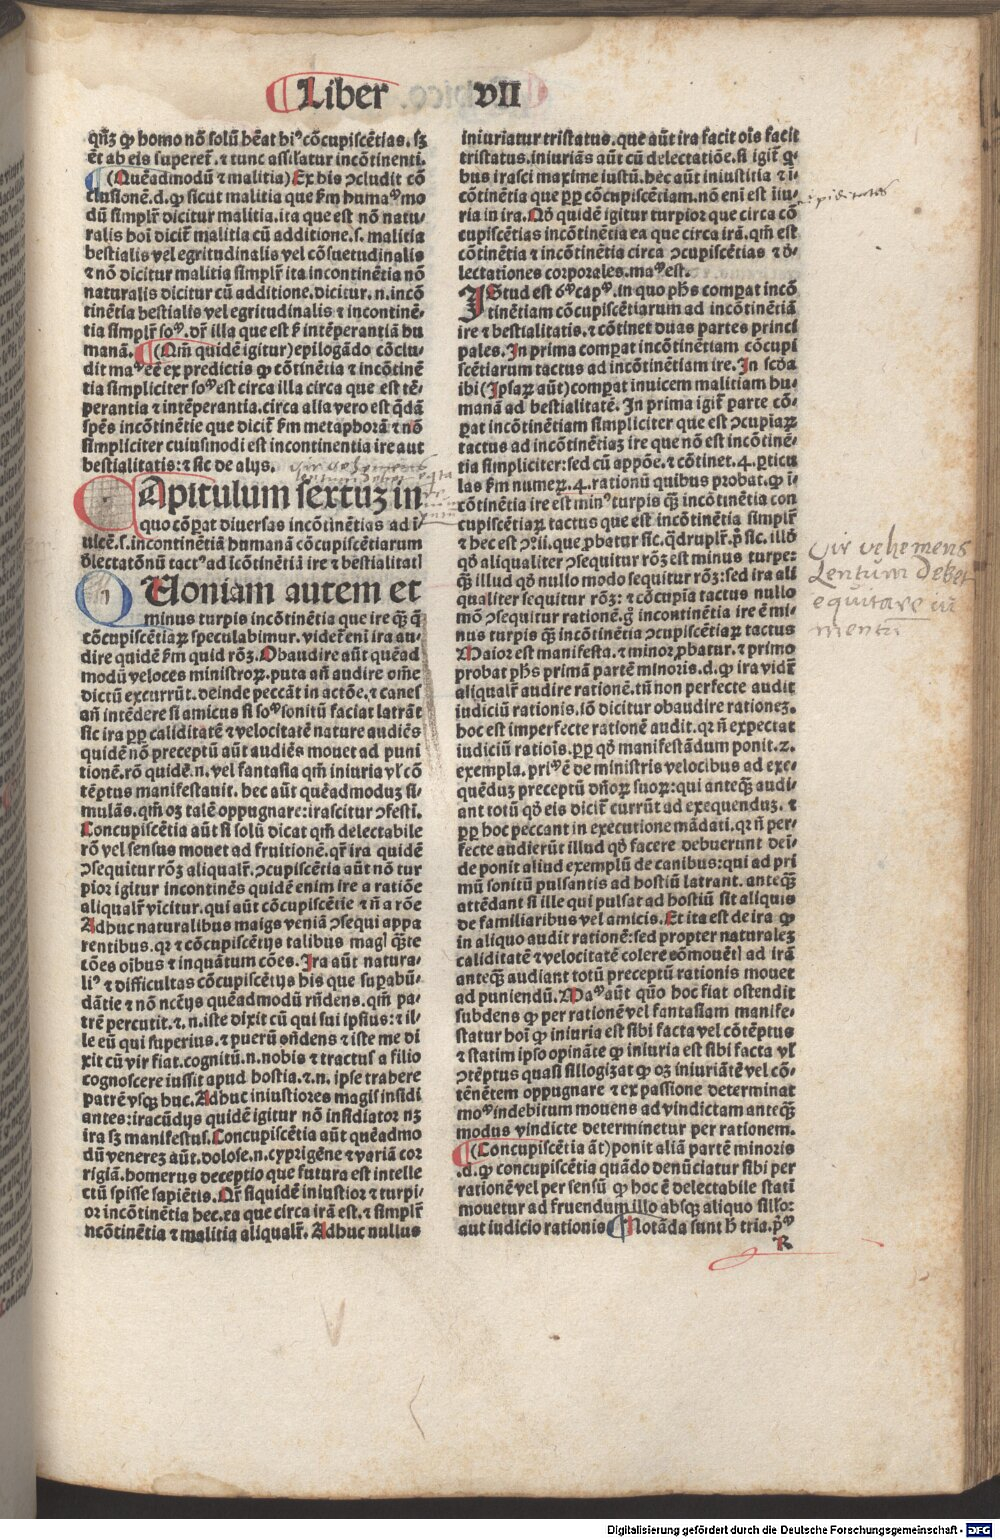 Liber VII
qñꝫ ꝙ homo nõ solũ hẽat hiꝰ cõcupiscẽtias. sꝫ
ẽt ab eis superet̃. ⁊ tunc assilatur incõtinenti.
(Quẽadmodũ ⁊ malitia) Ex his ↄcludit cõ
clusionẽ. d. ꝙ sicut malitia que ẜm humaꝰ mo
dũ simplr̃ dicitur malitia. ita que est nõ natu-
ralis hoĩ dicit̃ malitia cũ additione. s. malitia
bestialis vel egritudinalis vel cõsuetudinalis
⁊ nõ dicitur malitia simplr̃ ita incontinẽtia nõ
naturalis dicitur cũ additione. dicitur. n. incõ
tinẽtia bestialis vel egritudinalis ⁊ incontinẽ-
tia simplr̃ soꝰ. dr̃ illa que est ẜ intẽperantiã hu
manã. (Qm̃ quidẽ igitur) epilogãdo cõclu-
dit maꝰ eẽ ex predictis ꝙ cõtinẽtia ⁊ incõtinẽ
tia simpliciter soꝰ est circa illa circa que est tẽ-
perantia ⁊ intẽperantia. circa alia vero est q̃dã
spẽs incõtinẽtie que dicit̃ ẜm metaphorã ⁊ nõ
simpliciter cuiusmodi est incontinentia ire aut
bestialitatis: ⁊ sic de alijs.
Capitulum sextuꝫ in
quo cõpat diuersas incõtinẽtias ad i
uicẽ. s. incontinẽtiã humanã cõcupiscẽtiarum
ꝺlectatõnũ tactꝰ ad ĩcõtinẽtiã ire ⁊ bestialitat̃
Quoniam autem et
minus turpis incõtinẽtia que ire qꝫ̃ q̃
cõcupiscẽtiaꝝ speculabimur. videt̃ eni ira au-
dire quidẽ ẜm quid rõꝫ. Obaudire aũt quẽad
modũ veloces ministroꝝ. puta añ audire om̃e
dictũ excurrũt. deinde peccãt in actõe. ⁊ canes
añ intẽdere si amicus si soꝰ sonitũ faciat latrãt
sic ira ꝓp caliditatẽ ⁊ velocitatẽ nature audiẽs
quidẽ nõ preceptũ aũt audiẽs mouet ad puni
tionẽ. rõ quidẽ. n. vel fantasia qm̃ iniuria vl̃ cõ
tẽptus manifestauit. hec aũt quẽadmoduꝫ si-
mulãs. qm̃ oꝫ talẽ oppugnare: irascitur ↄfesti.
Concupiscẽtia aũt si solũ dicat qm̃ delectabile
rõ vel sensus mouet ad fruitionẽ. qr̃ ira quidẽ
ↄsequitur rõꝫ aliqualr̃. ↄcupiscẽtia aũt nõ tur
pior igitur incontinẽs quidẽ enim ire a ratiõe
aliqualr̃ vĩcitur. qui aũt cõcupiscẽtie ⁊ ñ a rõe
Adhuc naturalibus maigs veniã ↄsequi appa
rentibus. qꝛ ⁊ cõcupiscẽtijs talibus magl̃ qꝫ̃te
cões oĩbus ⁊ inquãtum cões. Ira aũt natura-
liꝰ ⁊ difficultas cõcupiscẽtijs his que supabũ-
dãtie ⁊ nõ ncẽijs quẽadmodũ rñdens. qm̃ pa-
trẽ percutit. ⁊. n. iste dixit cũ qui sui ipsius: ⁊ il-
le eũ qui superius. ⁊ puerũ oñdens ⁊ iste me di
xit cũ vir fiat. cognitũ. n. nobis ⁊ tractuſ a filio
cognoscere iussit apud hostia. ⁊. n. ipse trahere
patrẽ vsqꝫ huc. Adhuc iniustiores magis insidi
antes: iracũdijs quidẽ igitur nõ insidiator nꝫ
ira sꝫ manifestus. Concupiscẽtia aũt quẽadmo
dũ venereꝫ aũt. dolose. n. cyprigẽne ⁊ variã cor
rigiã. homerus deceptio que futura est intelle
ctũ spisse sapiẽtis. Qr̃ siquidẽ iniustior ⁊ turpi-
or incõtinẽtia hec. ea que circa irã est. ⁊ simplr̃
ncõtinẽtia ⁊ malitia aliqualr̃. Adhuc nullus
iniuriatur tristatus. que aũt ira facit oĩs facit
tristatus. iniuriãs aũt cũ delectatiõe. si igit̃ q-
bus irasci maxime iustũ. hec aũt iniustitia ⁊ ĩ-
cõtinẽtia que ꝓp cõcupiscẽtiam. nõ eni est iiu-
ria in ira. Qõ quidẽ igitur turpior que circa cõ
cupiscẽtias incõtinẽtia ea que circa irã. qm̃ est
cõtinẽtia ⁊ incõtinẽtia circa ↄcupiscẽtias ⁊ ꝺ-
lectationes corporales. maꝰ est.
IStud est 6ꝰ capꝰ. in quo ph̃s compat incõ
tinẽtiam cõcupiscẽtiarum ad incõtinẽtiã
ire ⁊ bestialitatis. ⁊ cõtinet duas partes princi
pales. In prima compat incõtinẽtiam cõcupi
scẽtiarum tactus ad incõtinẽtiam ire. In scḋa
ibi (Ipsaꝝ aũt) compat inuicem malitiam hu-
manã ad bestialitatẽ. In prima igit̃ parte cõ-
pat incõtinẽtiam simpliciter que est ↄcupiaꝝ
tactus ad incõtinẽtiaꝫ ire que nõ est incõtinẽ-
tia simpliciter: sed cũ appõe. ⁊ cõtinet. 4. pticu
las ẜm numeꝝ. 4. rationũ quibus probat. ꝙ i-
cõtinẽtia ire est minꝰ turpis qꝫ̃ incõtinẽtia con
cupiscẽtiaꝝ tactus que est incõtinẽtia simplr̃
⁊ hec est ↄꝰ ii. que ꝓbatur sic. q̃druplr̃. p̃ sic. illõ
qõ aliqualiter ↄsequitur rõꝫ est minus turpe:
qꝫ̃ illud qõ nullo modo sequitur rõꝫ: sed ira ali
qualiter sequitur rõꝫ: ⁊ cõcupia tactus nullo
mõ ↄsequitur rationẽ. gͦ incontinẽtia ire ẽ mi-
nus turpis qꝫ̃ incõtinẽtia ↄcupiscẽtiaꝝ tactus
Maior est manifesta. ⁊ minor ꝓbatur. ⁊ primo
probat ph̃s primã partẽ minoris. d. ꝙ ira vidr̃
aliqualr̃ audire rationẽ. tñ non perfecte audit
iudiciũ rationis. iõ dicitur obaudire rationeꝫ.
hoc est imperfecte rationẽ audit. qꝛ ñ expectat
iudiciũ ratiois. ꝓp qõ manifestãdum ponit. 2.
exempla. priꝰ ẽ de ministris velocibus ad exe-
quẽduꝫ preceptũ dñoꝝ suoꝝ: qui anteqꝫ̃ audi-
ant totũ qõ eis dicit̃ currũt ad exequenduꝫ. ⁊
ꝓp hoc peccant in executione mãdati. qꝛ ñ per-
fecte audierũt illud qõ facere debuerunt dei-
de ponit aliud exemplũ de canibus: qui ad pri
mũ sonitũ pulsantis ad hostiũ latrant. anteqꝫ̃
attẽdant si ille qui pulsat ad hostiũ sit aliquis
de familiaribus vel amicis. Et ita est de ira ꝙ
in aliquo audit rationẽ: sed propter naturaleꝫ
caliditatẽ ⁊ velocitatẽ colere cõmouẽtl̃ ad irã
anteqꝫ̃ audiant totũ preceptũ rationis mouet
ad puniendũ. Maꝰ aũt quõ hoc fiat ostendit
subdens ꝙ per rationẽ vel fantasiam manife-
statur hoĩ ꝙ iniuria est sibi facta vel cõtẽptus
⁊ statim ipso opinãte ꝙ iniuria est sibi facta vl̃
ↄtẽptus quasi sillogizat ꝙ oꝫ iniuriãtẽ vel cõ-
tẽnẽtem oppugnare ⁊ ex passione determinat
moꝰ indebitum mouens ad vindictam anteqꝫ̃
modus vindicte determinetur per rationem.
(Concupiscẽtia ãt) ponit aliã partẽ minoris
.d. ꝙ concupiscẽtia quãdo denũciatur sibi per
rationẽ vel per sensũ ꝙ hoc ẽ delectabile statĩ
mouetur ad fruendum illo absqꝫ aliquo sillo:
aut iudicio rationis Notãda sunt h̃ tria. p̃ꝰ
R
vir vehemens
Lentum debet
equitare iu
mentũ
Digitalisierung gefördert durch die Deutsche Forschungsgemeinschaft - DFG